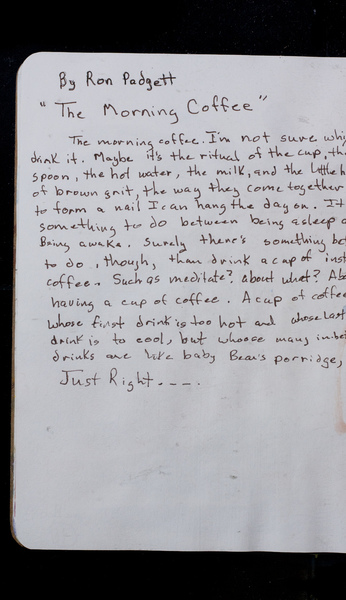 By Ron Padgett
"The Morning Coffee"
The morning coffee. I'm not sure why
drink it. Maybe it's the ritual of the cup, the
spoon, the hot water, the milk, and the little h
of brown grit, the way they come together
to form a nail I can hang the day on. It
something to do between being asleep a
Bring awake. Surely there's something bet
to do, though, than drink a cup of inst
coffee. Such as meditate? about what? Abo
having a cup of coffee. A cup of coffee
whose first drink is too hot and whose last
drink is to cool, but whoose many in-bet
drinks are like baby Bear's porridge,
Just Right----.